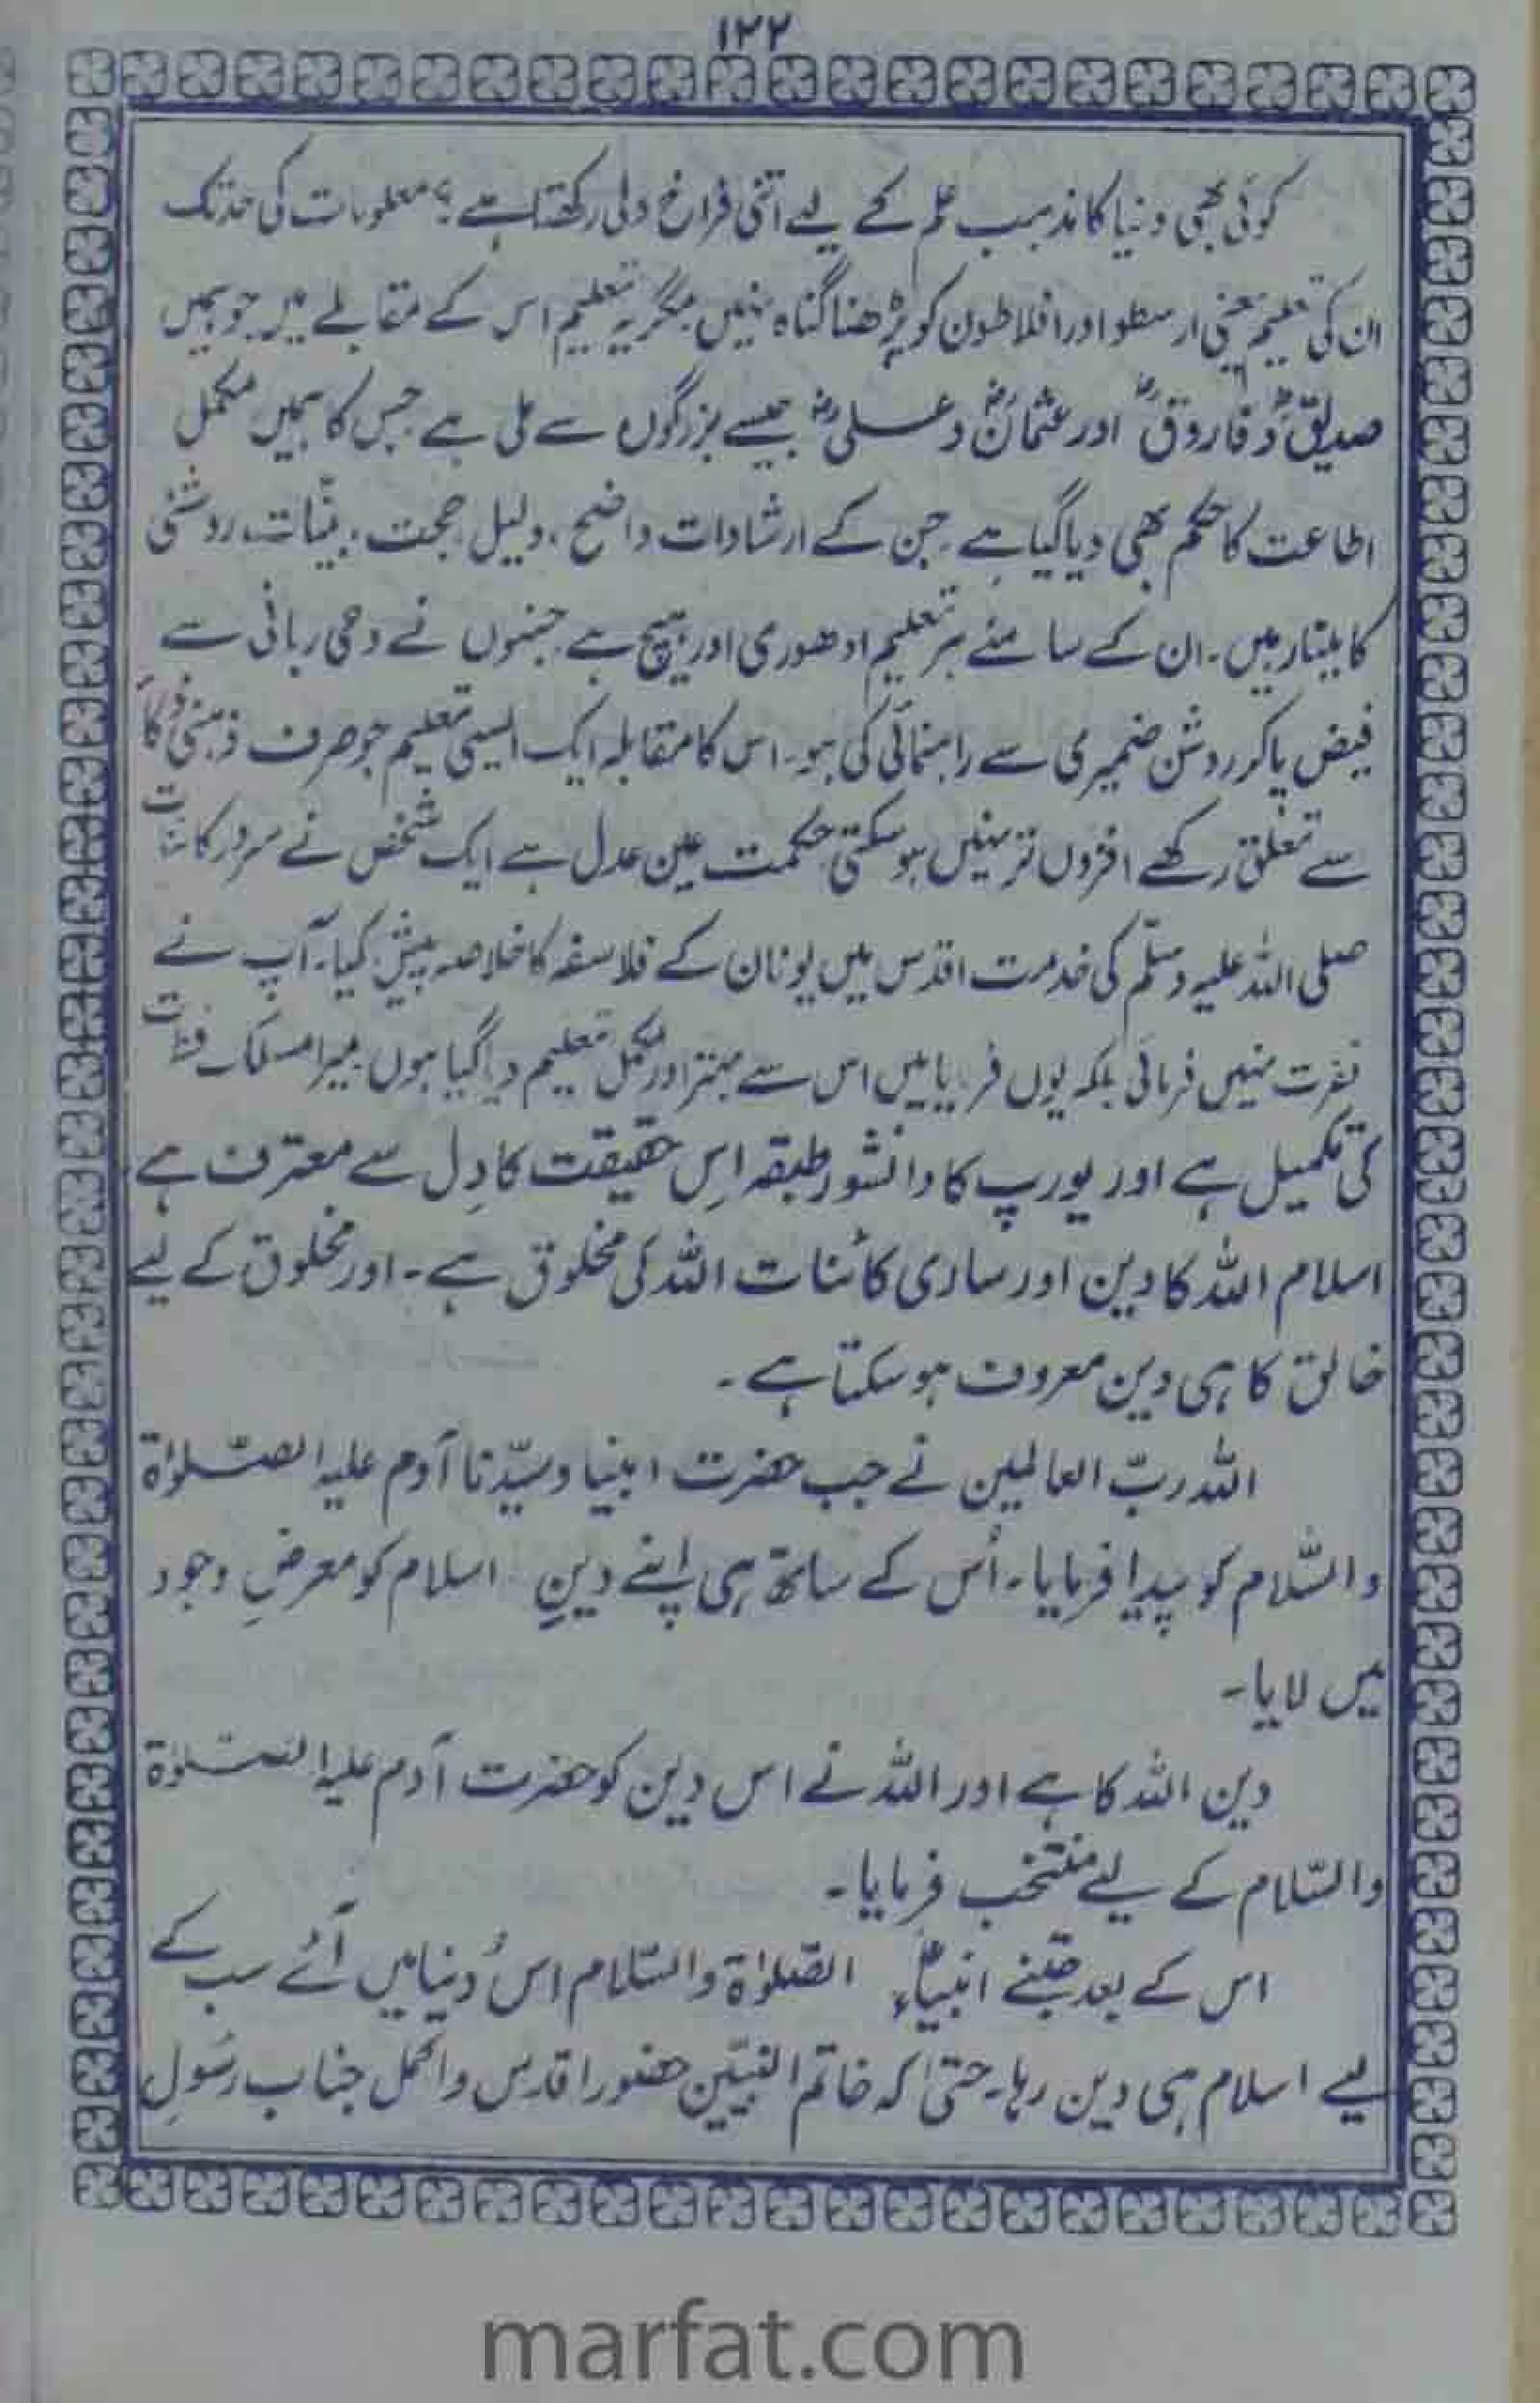 ۱۲۲
کوئی بھی دنیا کا مذہب علم کے لیے اتنی فراخ دلی رکھتا ہے؟ معلومات کی حد تک
ان کی تعلیم یعنی ارسطو اور افلاطون کو پڑھنا گناہ نہیں مگر یہ تعلیم اس کے مقابلے میں جو ہمیں
صدیقؓ و فاروقؓ اور عثمانؓ و علیؓ جیسے بزرگوں سے ملی ہے جس کا ہمیں مکمل
اطاعت کا حکم بھی دیا گیا ہے جن کے ارشادات واضح، دلیل، حجت، بیّنات، روشنی
کا مینار ہیں۔ ان کے سامنے ہر تعلیم ادھوری اور ہیچ ہے جنہوں نے وحی ربانی سے
فیض پا کر روشن ضمیری سے راہنمائی کی ہو۔ اس کا مقابلہ ایک ایسی تعلیم جو صرف ذہنی
سے تعلق رکھے افزوں تر نہیں ہو سکتی حکمت عین عدل ہے ایک شخص نے سرور کائنات
صلی اللہ علیہ وسلّم کی خدمت اقدس میں یونان کے فلاسفہ کا خلاصہ پیش کیا۔ آپ نے
نفرت نہیں فرمائی بلکہ یوں فرمایا میں اس سے بہتر اور مکمل تعلیم دیا گیا ہوں میرا مسلک فطرت
کی تکمیل ہے اور یورپ کا دانشور طبقہ اِس حقیقت کا دِل سے معترف ہے
اسلام اللہ کا دین اور ساری کائنات اللہ کی مخلوق ہے۔ اور مخلوق کے لیے
خالق کا ہی دین معروف ہو سکتا ہے۔
اللہ ربّ العالمین نے جب حضرت ابنیا و سیّدنا آدم علیہ الصّلوٰۃ
والسّلام کو پیدا فرمایا۔ اُس کے ساتھ ہی اپنے دینِ اسلام کو معرضِ وجود
میں لایا۔
دین اللہ کا ہے اور اللہ نے اس دین کو حضرت آدم علیہ الصّلوٰۃ
والسّلام کے لیے منتخب فرمایا۔
اس کے بعد جتنے انبیاء الصّلوٰۃ والسّلام اس دُنیا میں آئے سب کے
لیے اسلام ہی دین رہا۔ حتیٰ کہ خاتم النبیّین حضور اقدس و اکمل جناب رسُولِ
marfat.com